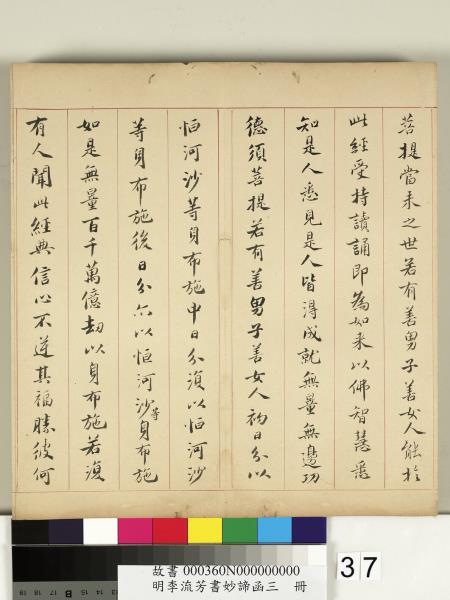 菩提當未之世若有善男子善女人能於
此經受持讀誦即為如来以佛智慧悉
知是人悉見是人皆得成就無量無邊功
德須菩提若有善男子善女人初日分以
恒河沙等身布施中日分復以恒河沙
等身布施後日分亦以恒河沙等身布施
如是無量百千萬億劫以身布施若復
有人聞此經典信心不逆其福勝彼何
故書 000360N000000000
明李流芳書妙諦函三 冊
37